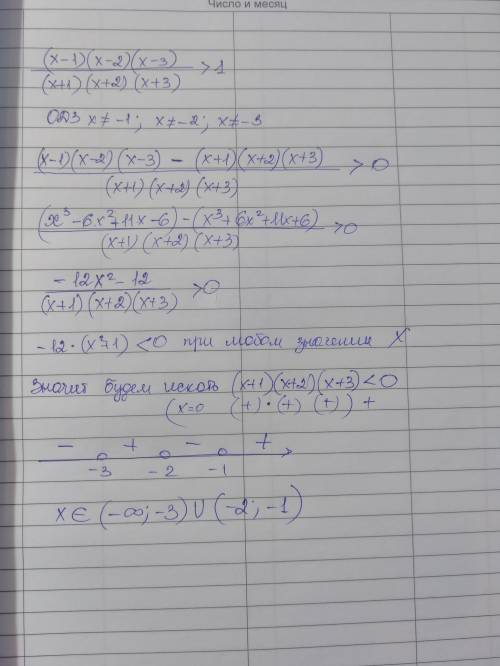 Число и месяц
(x-1)(x-2)(x-3)
(x+1)(x+2)(x+3) >1
ОДЗ x≠-1; x≠-2; x≠-3
(x-1)(x-2)(x-3) - (x+1)(x+2)(x+3)
(x+1)(x+2)(x+3) >0
(x³-6x²+11x-6)-(x³+6x²+11x+6)
(x+1)(x+2)(x+3) >0
-12x²-12
(x+1)(x+2)(x+3) >0
-12·(x²+1)<0 при любом значении x
Значит будем искать (x+1)(x+2)(x+3)<0
(x=0 (+)·(+)(+)) +
- + - +
-3 -2 -1
x∈(-∞;-3)∪(-2;-1)